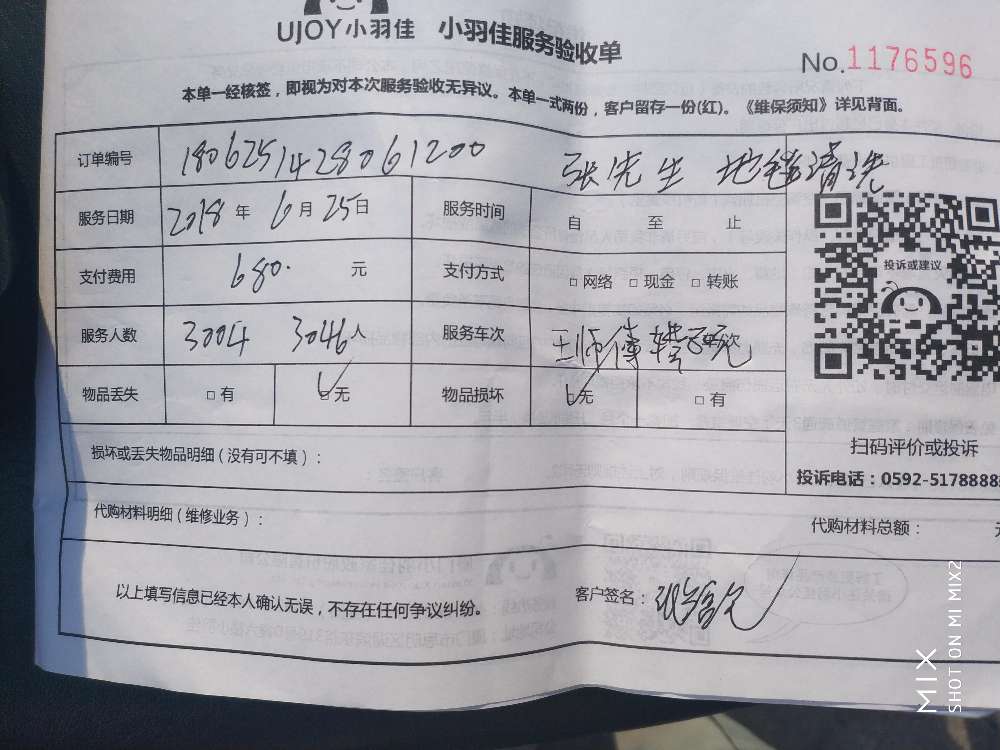 UJOY小羽佳 小羽佳服务验收单
No.1176596
本单一经核签，即视为对本次服务验收无异议。本单一式两份，客户留存一份(红)。《维保须知》详见背面。
订单编号 180625142806 1200 张先生 地毯清洗
服务日期 2018年 6月25日 服务时间 自 至 止
支付费用 680. 元 支付方式 □网络 □现金 □转账
投诉或建议
服务人数 3004 3046人 服务车次 王师傅 次
物品丢失 □有 □无 物品损坏 □无 □有
扫码评价或投诉
损坏或丢失物品明细（没有可不填）：
投诉电话：0592-5178888
代购材料明细（维修业务）： 代购材料总额：
以上填写信息已经本人确认无误，不存在任何争议纠纷。 客户签名：
MIX
SHOT ON MI MIX2